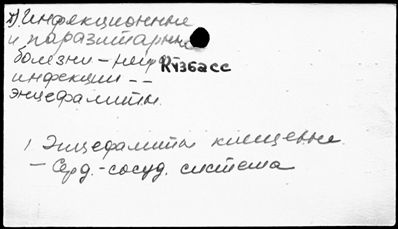 х) Инфекционные
и паразитарные
болезни - нейро
Кузбасс
инфекции --
энцефалиты.
1 Энцефалиты клещевые
- Серд.-сосуд. система